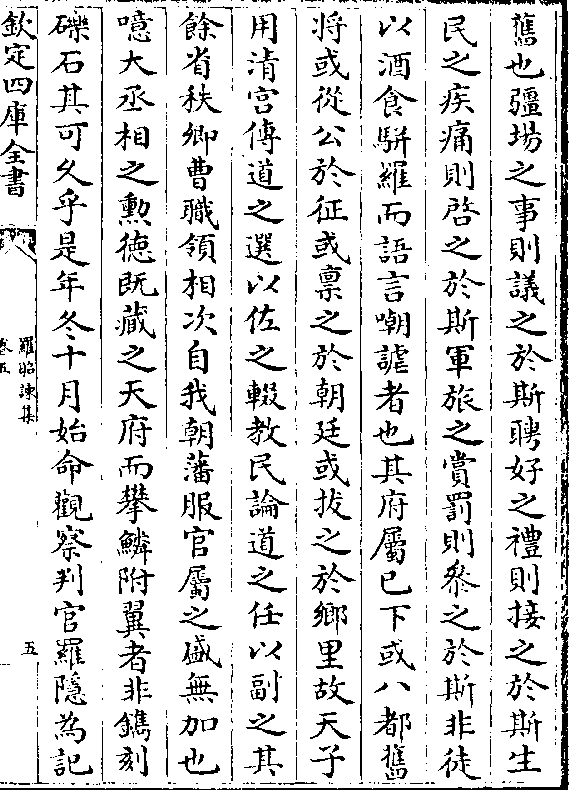 舊也疆埸之事則議之於斯聘好之禮則接之於斯生
民之疾痛則啓之於斯軍旅之賞罰則參之於斯非徒
以酒食駢羅而語言嘲謔者也其府屬已下或八都舊
将或從公於征或禀之於朝廷或拔之於鄉里故天子
用清宫傳道之選以佐之輟教民論道之任以副之其
餘省秩卿曹職領相次自我朝藩服官屬之盛無加也
噫大丞相之勲徳既藏之天府而攀鱗附翼者非鐫刻
礫石其可久乎是年冬十月始命觀察判官羅隱為記
欽定四庫全書
羅昭諫集
卷五
五